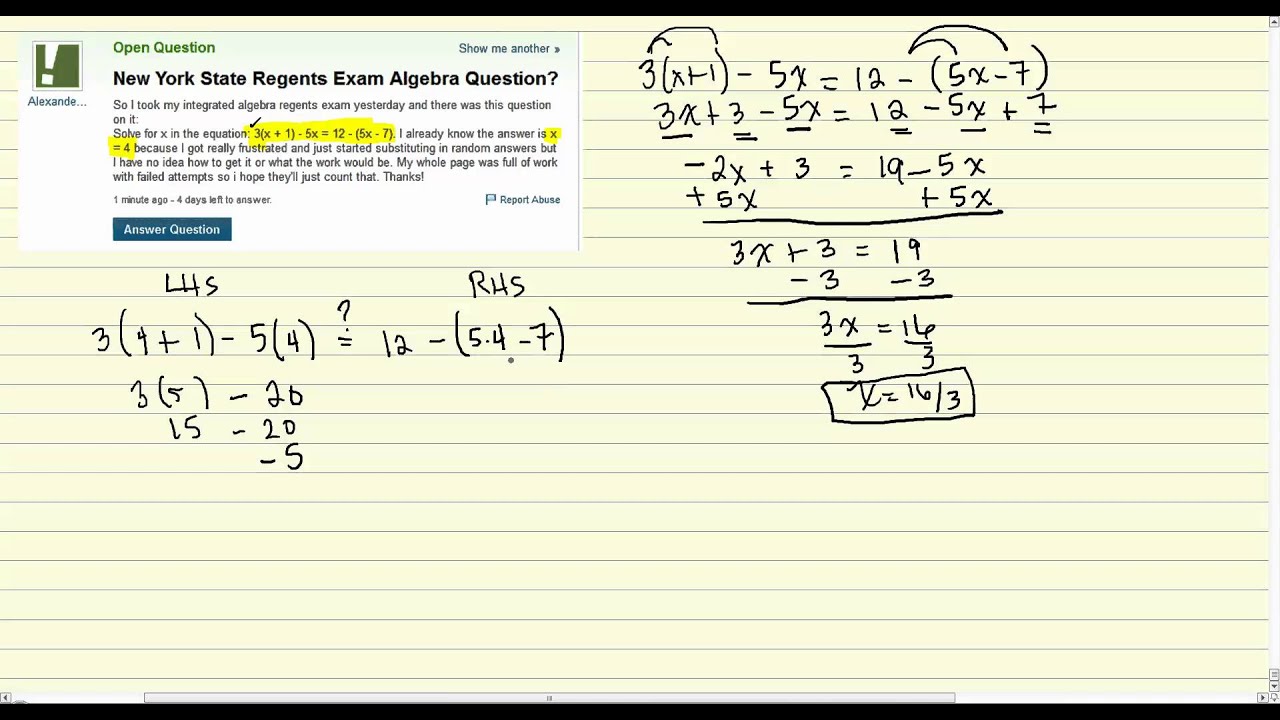 Open Question
Show me another »
New York State Regents Exam Algebra Question?
Alexande...
So I took my integrated algebra regents exam yesterday and there was this question
on it:
Solve for x in the equation: 3(x + 1) - 5x = 12 - (5x - 7). I already know the answer is x
= 4 because I got really frustrated and just started substituting in random answers but
I have no idea how to get it or what the work would be. My whole page was full of work
with failed attempts so i hope they'll just count that. Thanks!
1 minute ago - 4 days left to answer.
Report Abuse
Answer Question
LHS RHS
3(4+1) - 5(4) ?= 12 - (5·4 - 7)
3(5) - 20
15 - 20
-5
3(x+1) - 5x = 12 - (5x - 7)
3x + 3 - 5x = 12 - 5x + 7
-2x + 3 = 19 - 5x
+ 5x + 5x
3x + 3 = 19
- 3 - 3
3x = 16
3 3
x = 16/3